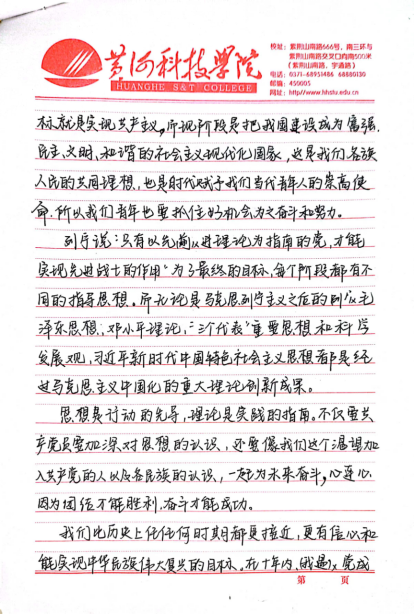 黄河科技学院
HUANGHE S&T COLLEGE
校址：紫荆山南路666号，南三环与
紫荆山南路交叉口向南500米
（紫荆山南路，宇通路）
电话：0371-68951486 68880130
邮编：450005
网址：http//www.hhstu.edu.cn
标就是实现共产主义，而现阶段是把我国建设成为富强、
民主、文明、和谐的社会主义现代化国家，这是我们各族
人民的共同理想，也是时代赋予我们当代青年人的崇高使
命，所以我们青年也要抓住好机会为之奋斗和努力。
列宁说："只有以先前进理论为指南的党，才能
实现先进战士的作用"为了最终的目标，每个阶段都有不
同的指导思想。而无论是马克思列宁主义之后的到毛
泽东思想、邓小平理论，"三个代表"重要思想和科学
发展观，习近平新时代中国特色社会主义思想都是经
过马克思主义中国化的重大理论创新成果。
思想是行动的先导，理论是实践的指南。不仅要共
产党员要加深对思想的认识，还要像我们这个渴望加
入共产党的人以及各民族的认识，一起为未来奋斗，心连心
因为团结才能胜利，奋斗才能成功。
我们比历史上任任何时期都更接近，更有信心和
能实现中华民族伟大复兴的目标。在十年内，我 党成
第 页